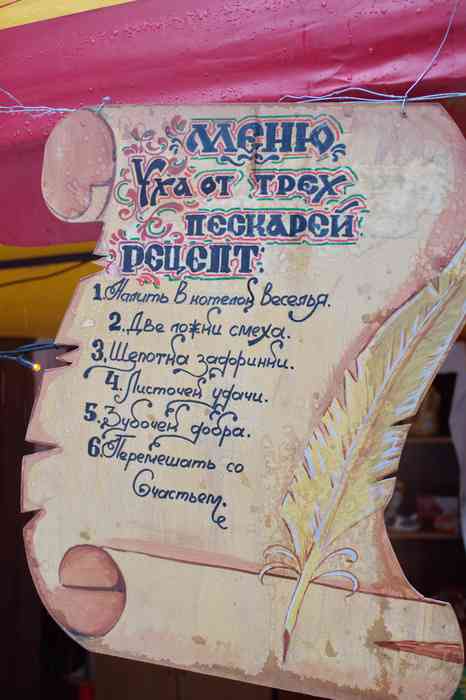 Меню
Уха от трех
пескарей
Рецепт:
1. Налить в котелок веселья.
2. Две ложки смеха.
3. Щепотка задоринки.
4. Листочек удачи.
5. Зубочек добра.
6. Перемешать со
Счастьем.